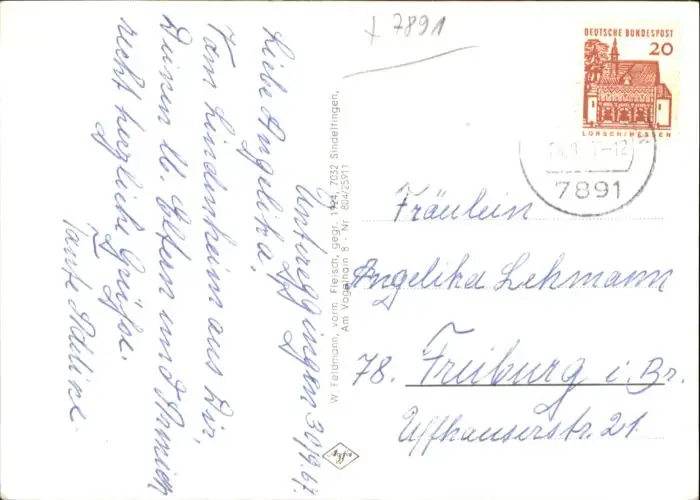 + 7891
DEUTSCHE BUNDESPOST
20
LORSCH/HESSEN
-12
7891
Untereggingen 30/9.67.
Liebe Angelika!
Vom Lindenheim aus Dir,
Deinen lb. Eltern und
recht herzliche Grüße.
Tante Pauline.
W. Feldmann, vorm. Fleisch, gegr. 1924, 7032 Sindelfingen,
Am Vogelhain 8 - Nr. 804/25911
Fräulein
Angelika Lehmann
78. Freiburg i. Br.
Uffhauserstr. 21